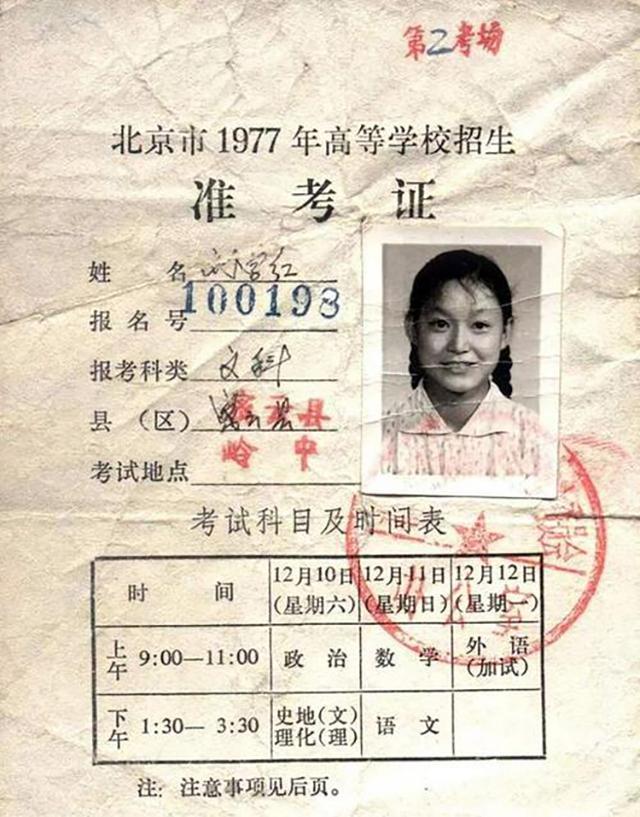 第2考场
北京市1977年高等学校招生
准考证
姓名 红
报名号 100198
报考科类 文科
县（区） 密云县
考试地点
考试科目及时间表
时间 12月10日(星期六) 12月11日(星期日) 12月12日(星期一)
上午 9:00—11:00 政治 数学 外语(加试)
下午 1:30—3:30 史地(文)理化(理) 语文
注：注意事项见后页。